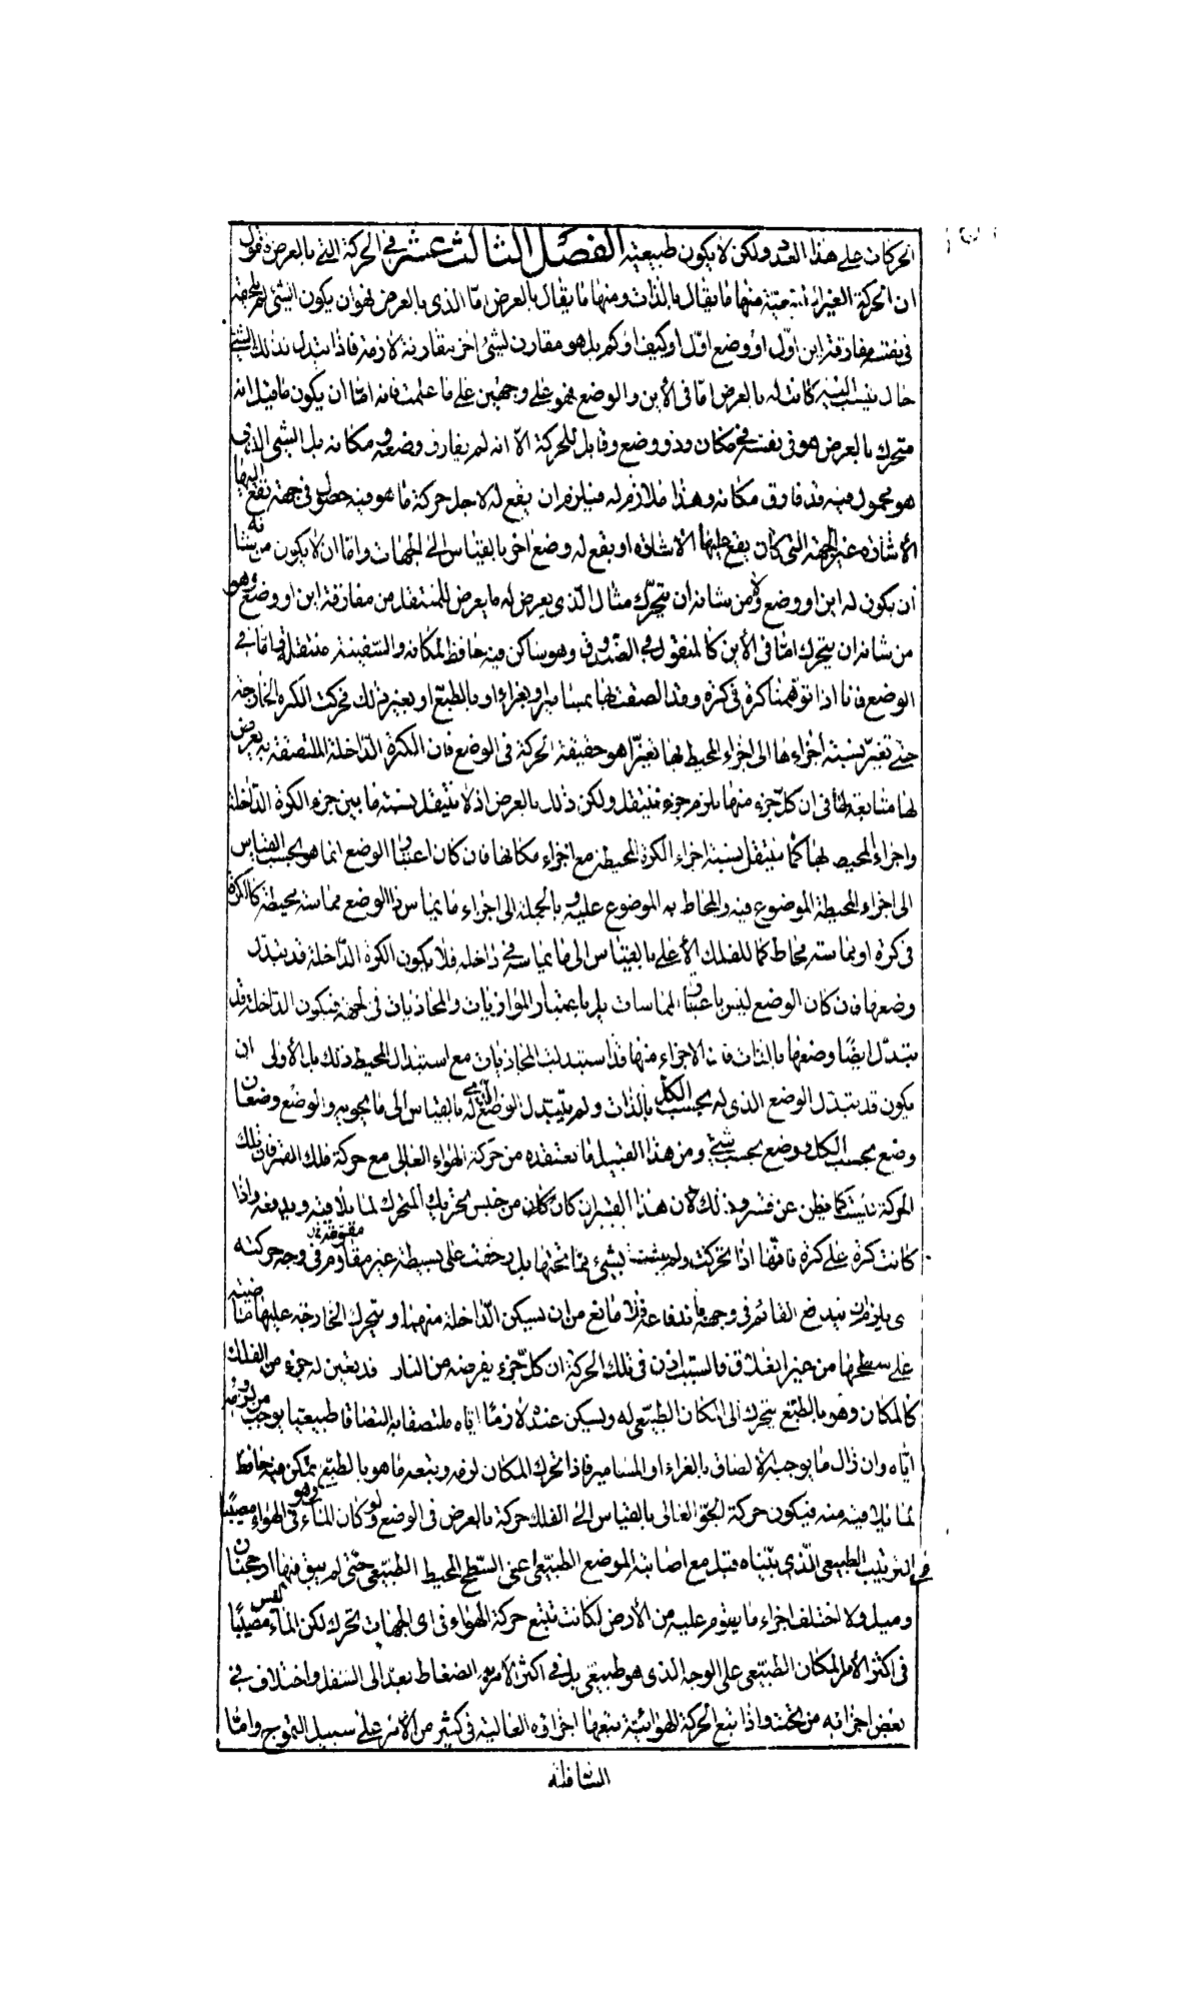 الحركات على هذا القدر ولكن لا يكون طبيعية الفصل الثالث عشر في الحركة التي بالعرض فنقول
ان الحركة الغير منها ما يقال بالذات ومنها ما يقال بالعرض اما الذى بالعرض فهو ان يكون الشئ لم يلحقه
في نفسه مفارقة اين اول او وضع اول او كيف او كم بل هو مقارن لشئ اخر مقارنة لازمة فاذا تبدل لذلك الشئ
حال ينسب اليه كانت له بالعرض اما فى الأين والوضع فهو على وجهين على ما علمت فانه اما ان يكون ما قيل انه
متحرك بالعرض هو فى نفسه فى مكان وذو وضع وقابل للحركة الا انه لم يفارق وضعه ومكانه بل الشئ الذى
هو محمول فيه قد فارق مكانه وهذا ملازم له فيلزم ان يقع له لاجل حركة ما هو فيه حصول فى جهة تقع اليها
الأشارة غير الجهة التى كان يقع عليها الاشارة او يقع له وضع اخر بالقياس الى الجهات واما ان لا يكون من شانه
ان يكون له اين او وضع ولا من شانه ان يتحرك مثال الذى يعرض له ما يعرض للمنتقل من مفارقة اين او وضع وهو
من شانه ان يتحرك اما فى الأين كالمنقول فى الصندوق وهو ساكن فيه حافظ لمكانه والسفينة منتقلة اما في
الوضع فانا اذا توهمنا كرة فى كرة وقد الصقت بها بمسامير او بغراء او بالطبع او بغير ذلك فحركت الكرة الخارجة
حتى تغير نسبة اجزاءها الى اجزاء المحيط بها تغيرا هو حقيقة الحركة فى الوضع فان الكرة الداخلة الملتصقة به يعرض
لها متابعة لها فى ان كل جزء منها يلزم جزء فينتقل ولكن ذلك بالعرض اذ لا ينتقل نسبة ما بين جزء الكرة الداخلة
واجزاء المحيط بها كما ينتقل نسبة اجزاء الكرة المحيطة مع اجزاء مكانها فان كان اعتبار الوضع انما هو بحسب القياس
الى اجزاء المحيطة الموضوع فيه والمحاط به الموضوع عليه وبالجملة الى اجزاء ما يماس ذا الوضع مماسة محيطة كالكرة
فى كرة او مماسة محاط كما للفلك الأعلى بالقياس الى ما يماسه فى داخله فلا يكون الكرة الداخلة قد تبدل
وضعها فان كان الوضع ليس باعتبار المماسات بل باعتبار الموازيات والمحاذيات فى الجهة فيكون الداخلة قد
تبدل ايضا وضعها بالذات فان الاجزاء منها قد استبدلت المحاذيات مع استبدال المحيط ذلك بل الأولى ان
يكون قد تبدل الوضع الذى له بحسب الكل بالذات ولم يتبدل الوضع الذى له بالقياس الى ما يحويه والوضع وضعان
وضع بحسب الكل ووضع بحسب شئ ومن هذا القبيل ما نعتقده من حركة الهواء العالى مع حركة فلك القمر فان تلك
الحركة ليست كما يظن عن قسر وذلك لان هذا القسر ان كان كان من جنس تحريك المتحرك لما يلاقيه ويدفعه واذا
كانت كرة على كرة فانها اذا تحركت ولم يتشبث بشئ مما تحتها بل زحفت على بسيطه غير مقاوم فى وجه حركته
يلزمه ان يندفع القائم فى وجهه باندفاعه فلا مانع من ان تسكن الداخلة منهما ويتحرك الخارجة عليها مماسة
على سطحها من غير انفلاق فالسبب اذن فى تلك الحركة ان كل جزء يفرضه من النار قد يعين له جزء من الفلك
كالمكان وهو بالطبع يتحرك الى المكان الطبيعى له ويسكن عنده لازما اياه ملتصقا به التصاقا طبيعيا يوجب من لزومه
اياه وان زال ما يوجبه الالصاق بالغراء او المسامير فاذا تحرك المكان لزمه وتبعه ما هو بالطبع متمكن فيه حافظ
لما يلاقيه منه فيكون حركة الجو العالى بالقياس الى الفلك حركة بالعرض فى الوضع ولو كان الماء وهو فى الهواء مصيبا
فى الترتيب الطبيعى الذى بيناه قبل مع اصابته الموضع الطبيعى اعنى السطح المحيط الطبيعى حتى لم يبق فيها ارجحنان
وميل ولا اختلف اجزاء ما يقوم عليه من الأرض لكانت تتبع حركة الهواء فى اى الجهات تحرك لكن الماء ليس مصيبا
فى اكثر الأمر لمكان الطبيعى على الوجه الذى هو طبيعى بل فى اكثر الأمر به انضغاط بعد الى السفل واختلاف في
بعض اجزائه من تحته واذا تبع الحركة الهوائية تبعها اجزاؤه العالية فى كثير من الأمر على سبيل التموج واما
السافلة